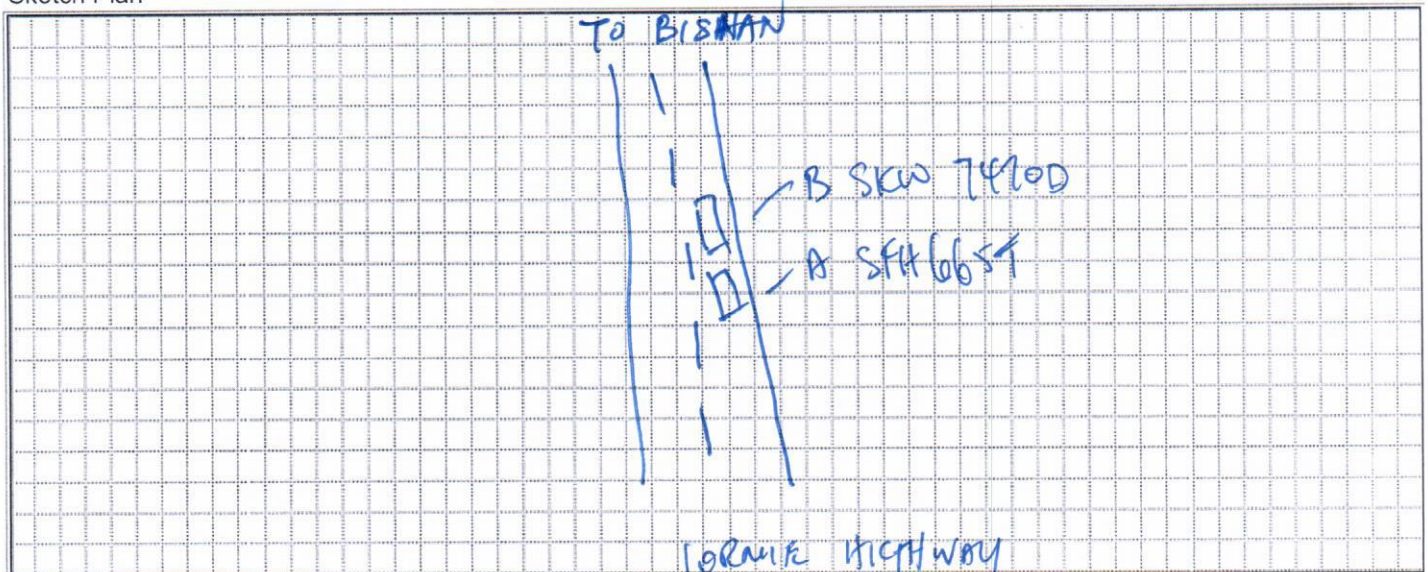 Sketch Plan
TO BISHAN
B SKW 7470D
A SFH6657
LORNIE HIGHWAY